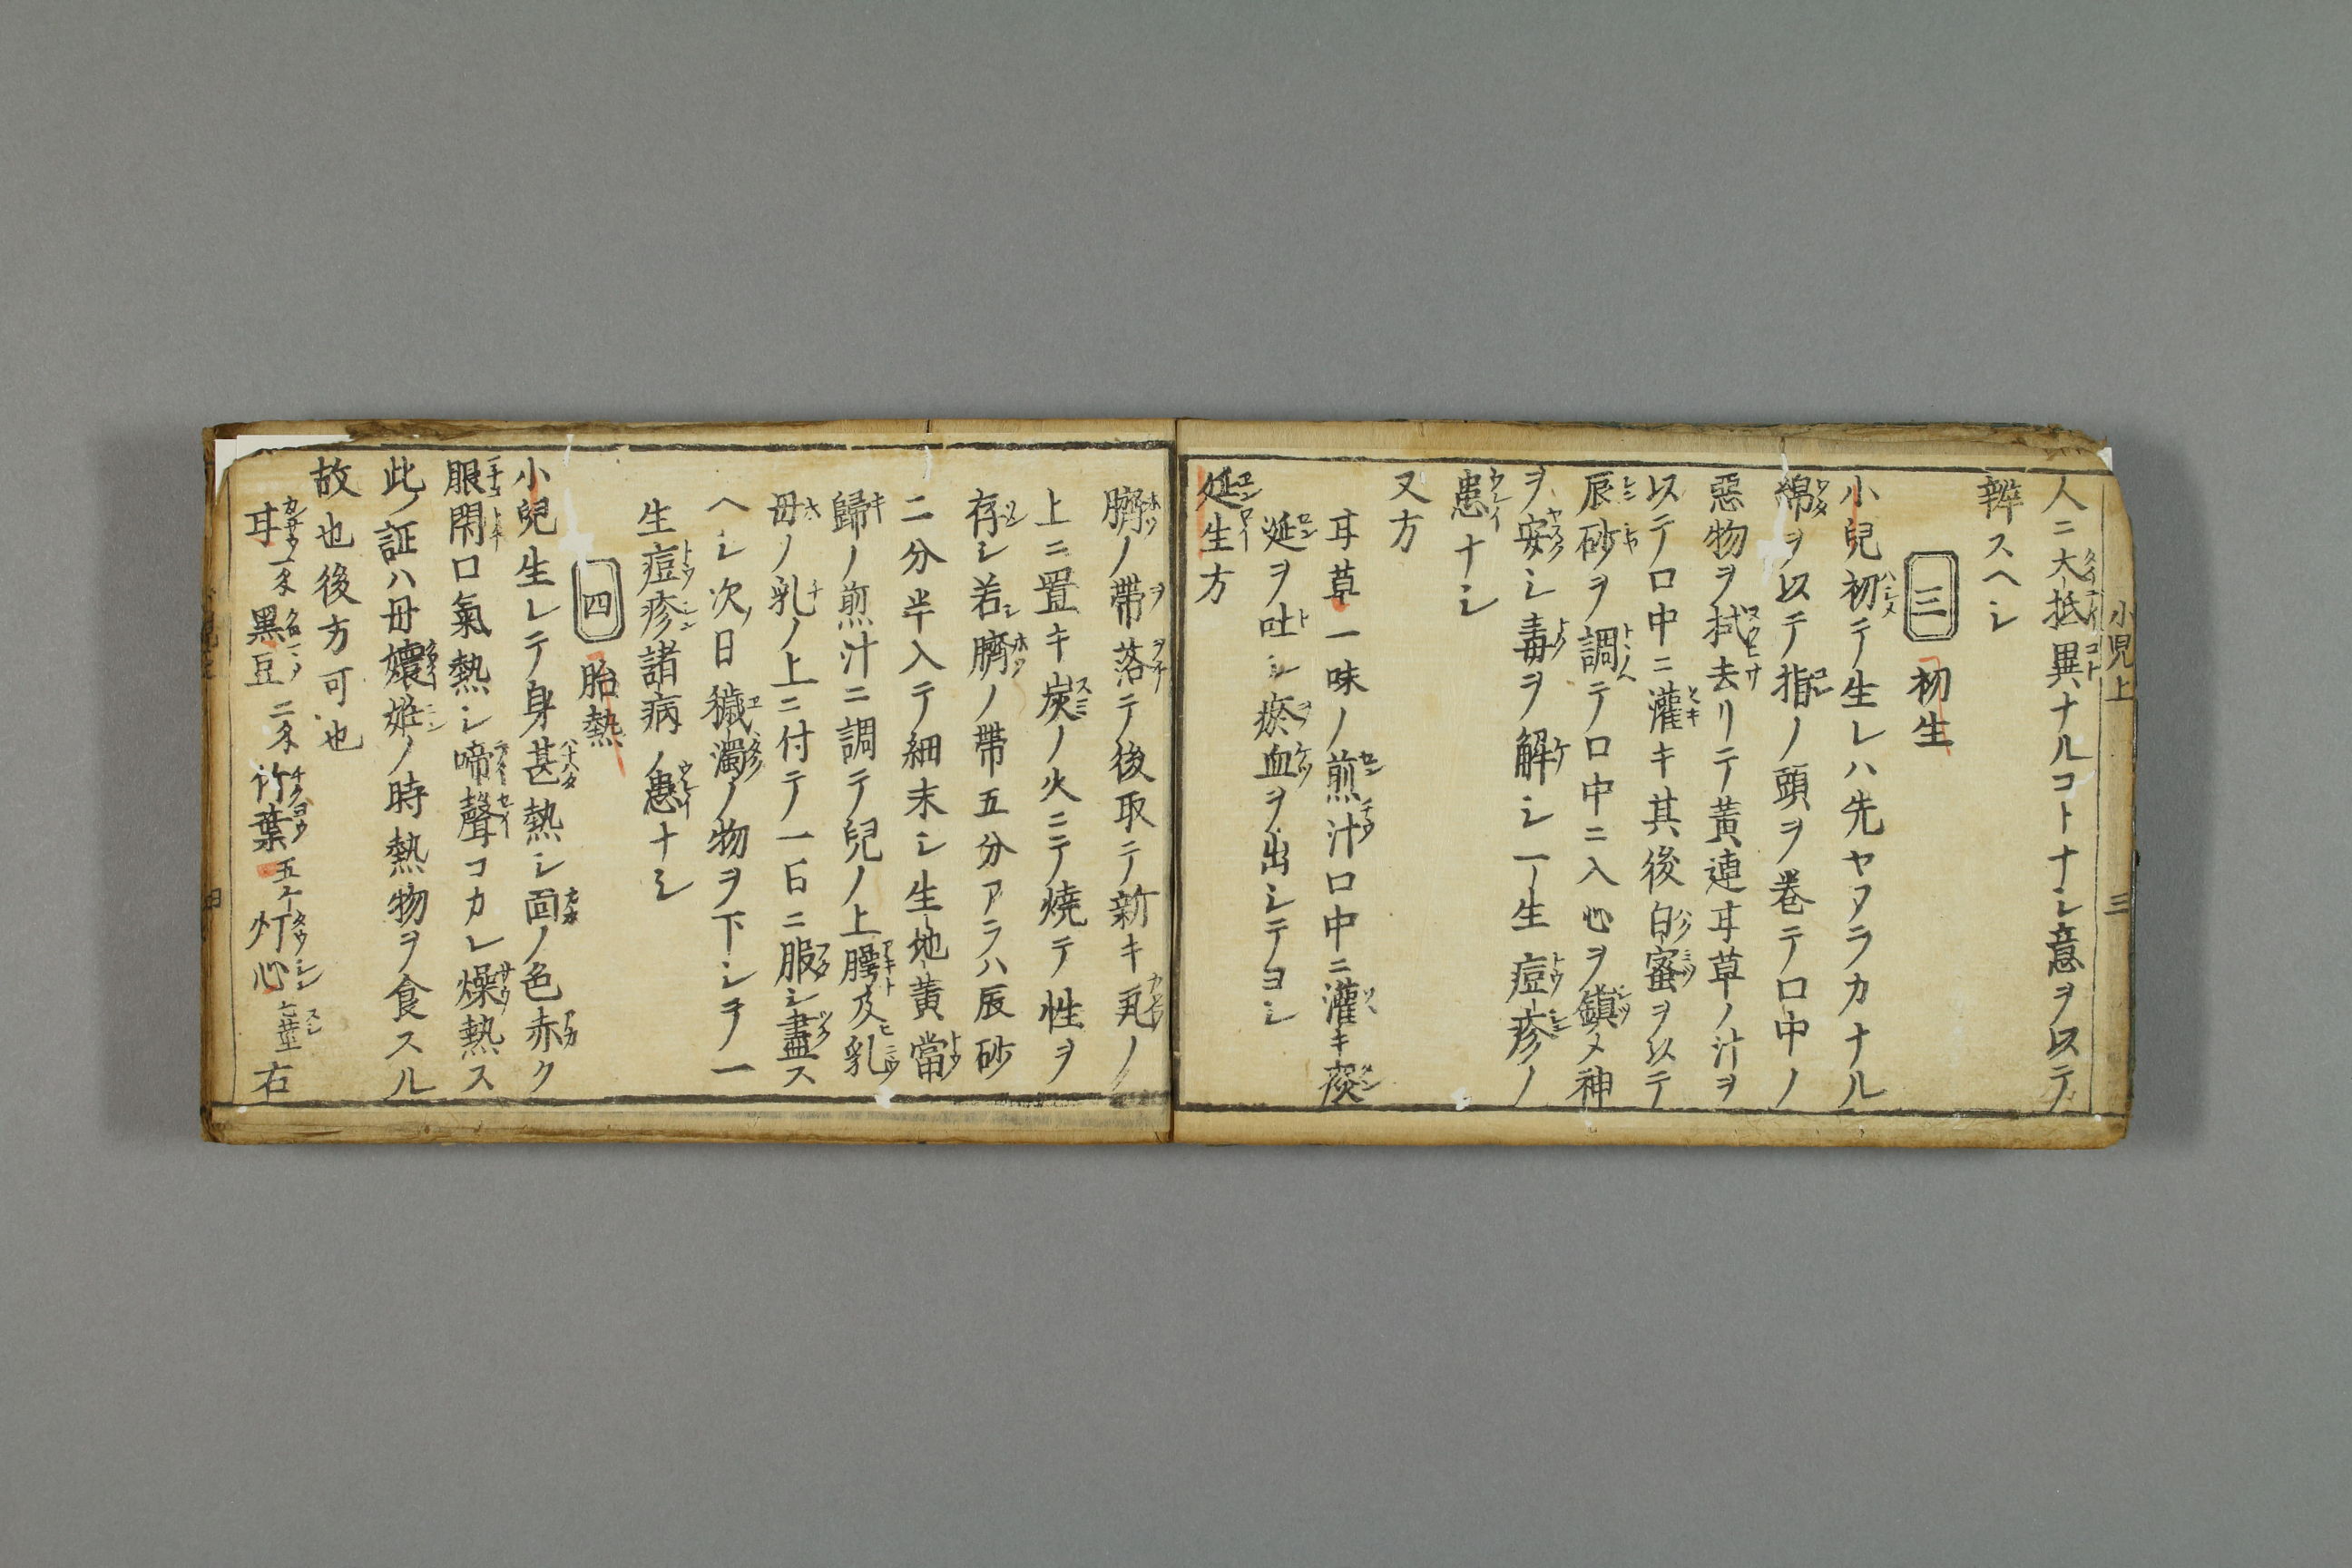 小児上 三
人ニ大抵異ナルコトナシ意ヲ以テ
辨スヘシ
三 初生
小兒初テ生レハ先ヤワラカナル
綿ヲ以テ指ノ頭ヲ巻テ口中ノ
惡物ヲ拭去リテ黃連耳草ノ汁ヲ
以テ口中ニ灌キ其後白蜜ヲ以テ
辰砂ヲ調テ口中ニ入心ヲ鎭メ神
ヲ安シ毒ヲ解シ一生痘疹ノ
患ナシ
又方
耳草一味ノ煎汁口中ニ灌キ痰
涎ヲ吐シ瘀血ヲ出シテヨシ
延生方
臍ノ帶落テ後取テ新キ瓦ノ
上ニ置キ炭ノ火ニテ燒テ性ヲ
存シ若臍ノ帶五分アラハ辰砂
二分半入テ細末シ生地黃當
歸ノ煎汁ニ調テ兒ノ上腭及乳
母ノ乳ノ上ニ付テ一日ニ服シ盡ス
ヘシ次ノ日穢濁ノ物ヲ下シテ一
生痘疹諸病ノ患ナシ
四 胎熱
小兒生レテ身甚熱シ面ノ色赤ク
眼閉口氣熱シ啼聲コカレ燥熱ス
此ノ証ハ母懷姙ノ時熱物ヲ食スル
故也後方可也
耳一匁 黑豆二匁 竹葉五ケ 灯心七莖 右